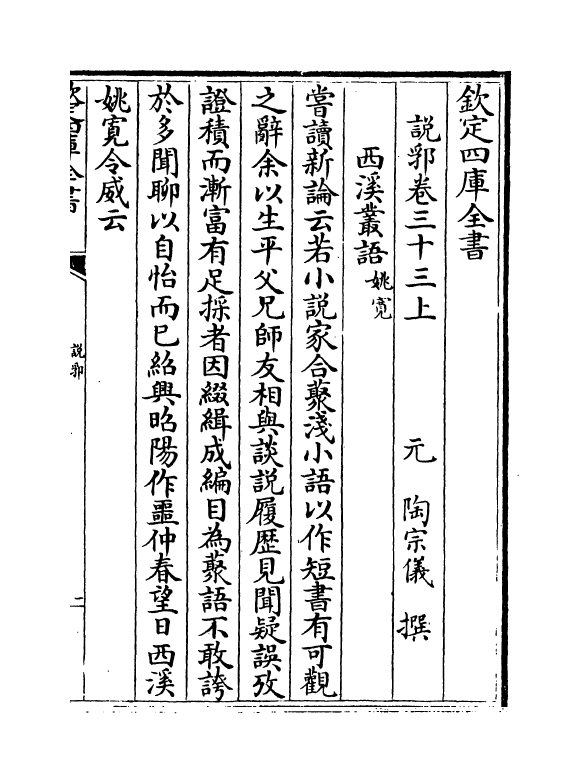 欽定四庫全書
說郛卷三十三上 元 陶宗儀 撰
西溪叢語 姚寬
嘗讀新論云若小說家合藂淺小語以作短書有可觀
之辭余以生平父兄師友相與談說履歷見聞疑誤攷
證積而漸富有足採者因綴緝成編目為藂語不敢誇
於多聞聊以自怡而已紹興昭陽作噩仲春望日西溪
姚寬令威云
說郛